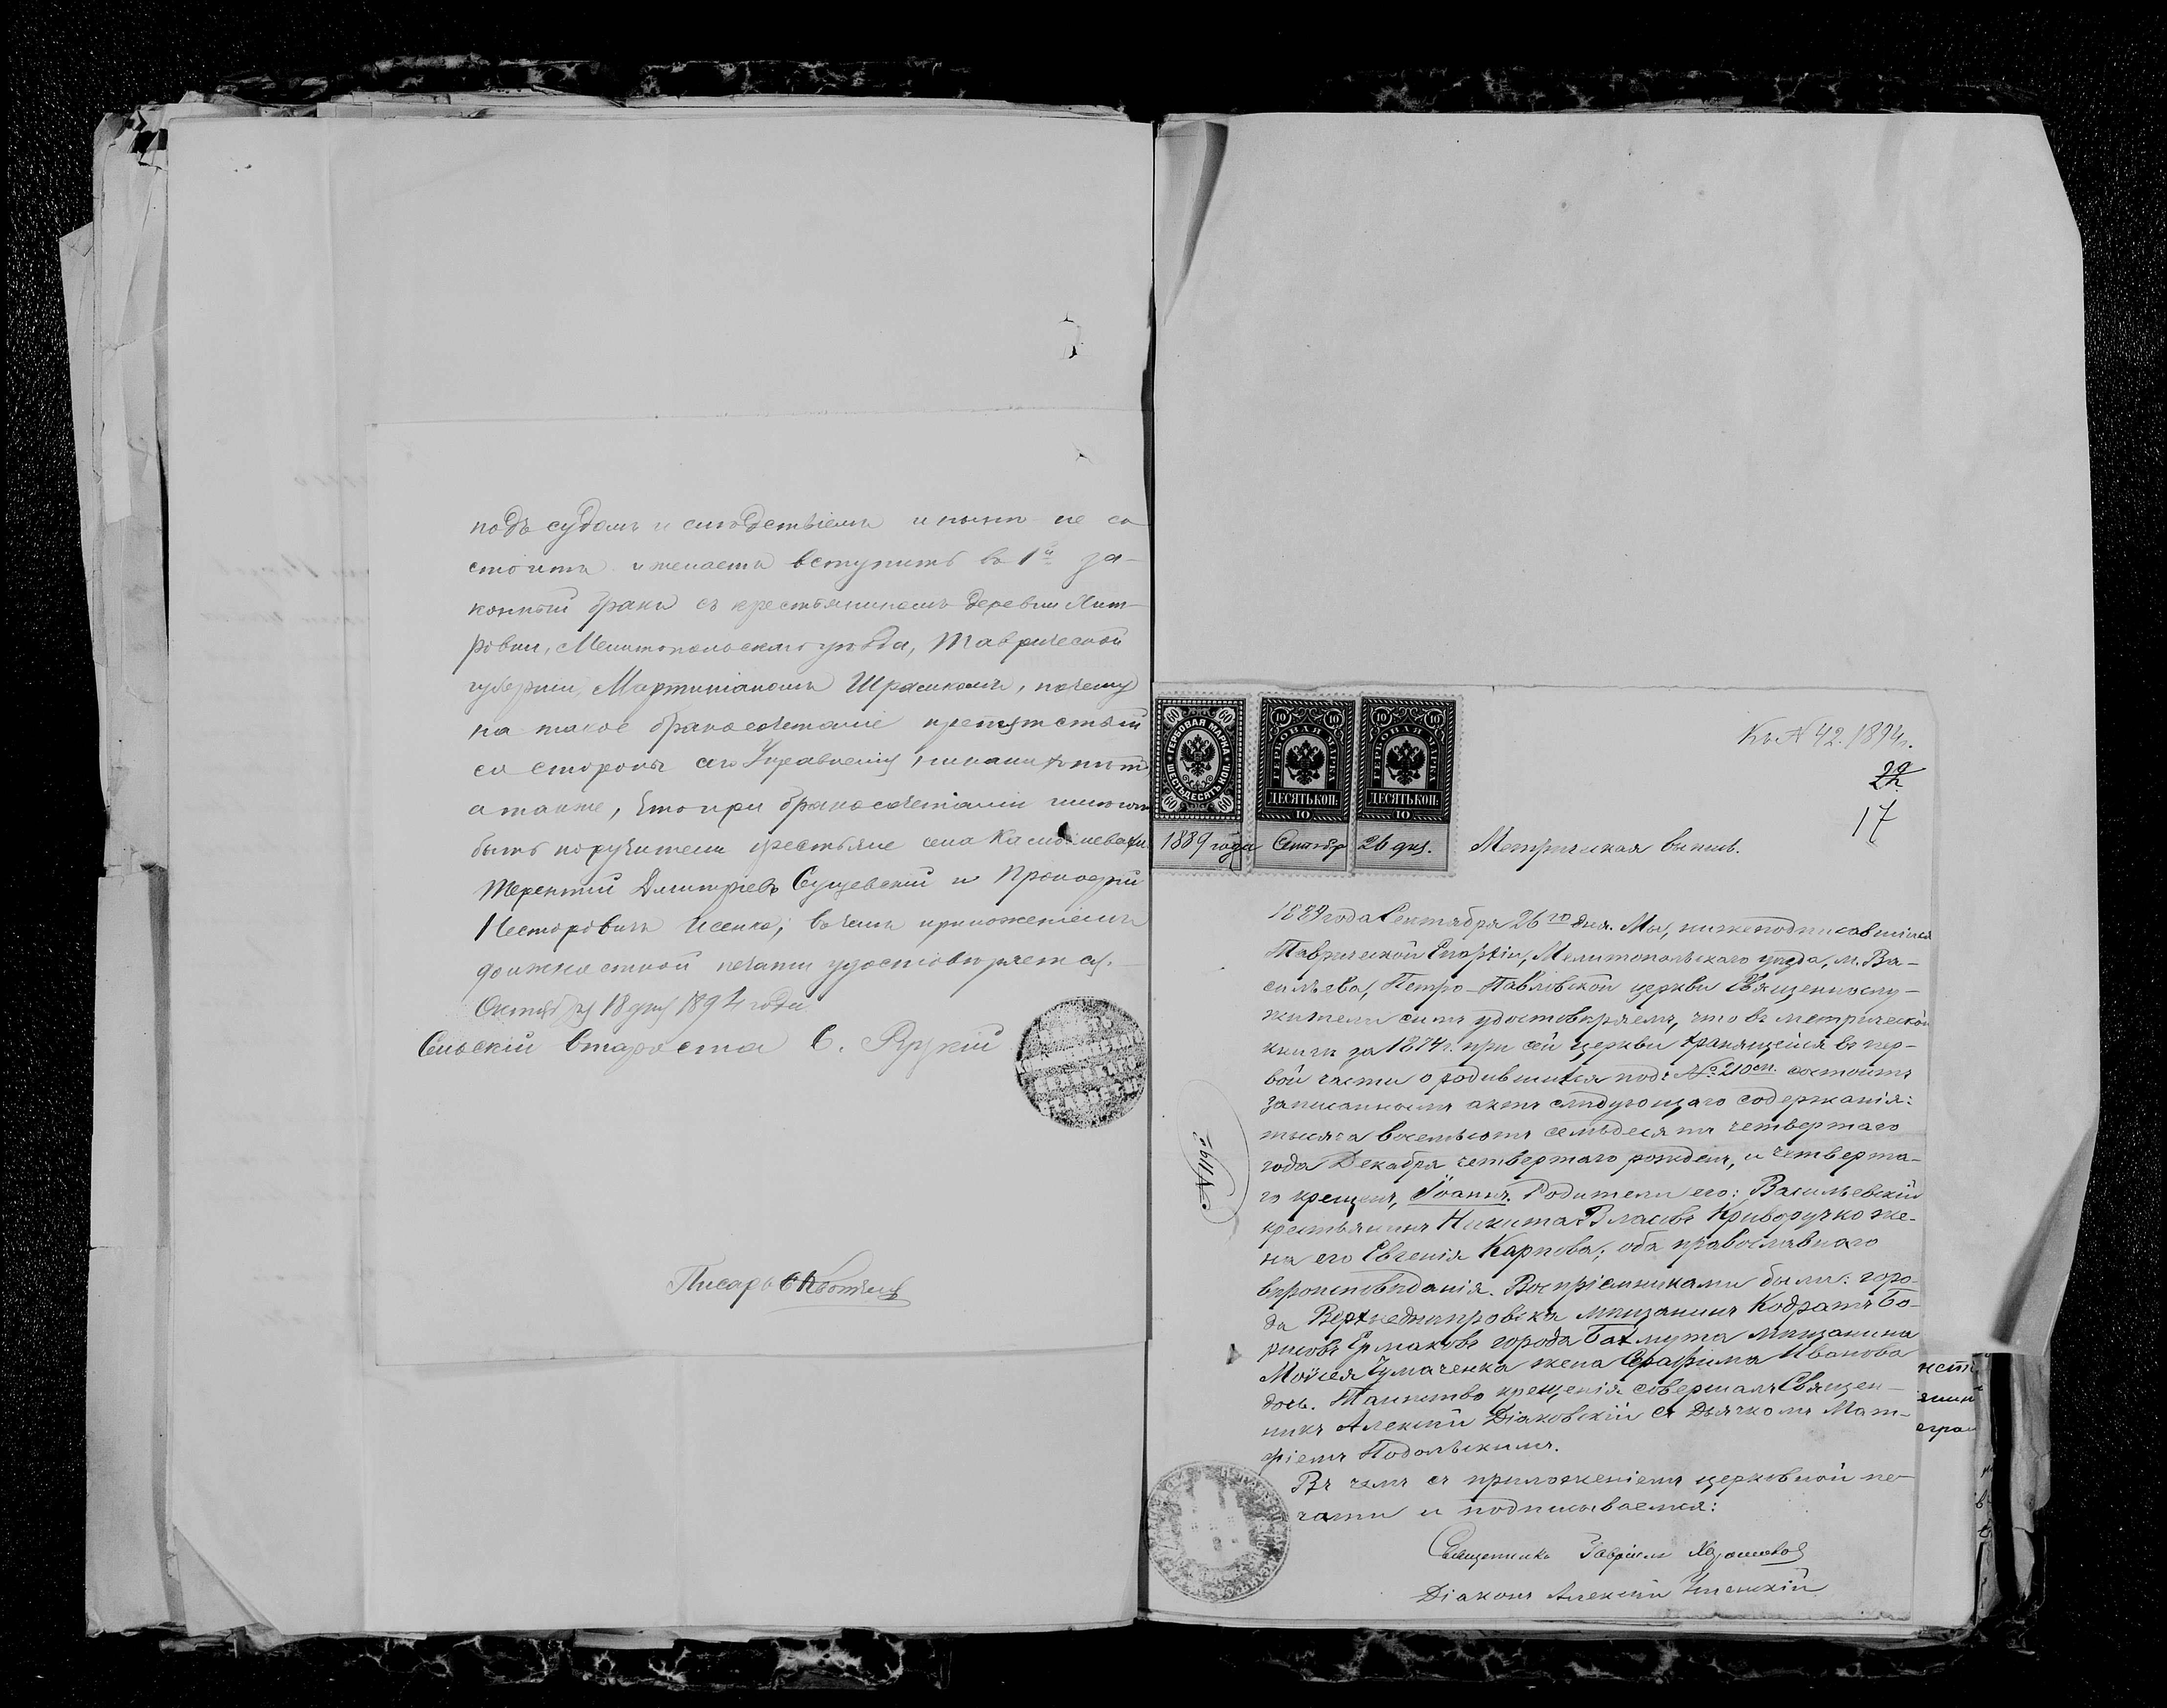 подъ судомъ и слѣдствіемъ и нынѣ не со
стоитъ и желаетъ вступить въ 1й за-
конный бракъ съ крестьяниномъ деревни
ровки, Мелитопольскаго уѣзда, Таврической
губерніи, Мартиніаномъ почему
на такое бракосочетаніе препятствій
со стороны сего Управленія
а также, что при бракосочетаніи
быть поручители крестьяне села
Терентій Дмитріевъ Сущевскій и Прокофій
Несторовичъ Исенко; въ чемъ приложеніемъ
должностной печати удостовѣряется.
Октября 18 дня 1894 года
Сельскій Староста С. Рүкій
Писарь
Къ № 42. 1894 г.
22
17
ГЕРБОВАЯ МАРКА ШЕСТЬДЕСЯТЪ КОП. 60
ГЕРБОВАЯ МАРКА ДЕСЯТЬ КОП. 10
ГЕРБОВАЯ МАРКА ДЕСЯТЬ КОП. 10
1889 года Сентябр 26 дня. Метрическая выпись.
1889 года Сентября 26го дня. Мы, нижеподписавшіеся
Таврической Епархіи, Мелитопольскаго уѣзда, м. Ва-
сильева, Петро-Павловской церкви Священнослу-
жители симъ удостовѣряемъ, что въ метрической
книгѣ за 1874 г. при сей церкви хранящейся въ пер-
вой части о родившихся подъ № 210м. состоитъ
записаннымъ актъ слѣдующаго содержанія:
тысяча восемьсотъ семьдесятъ четвертаго
года Декабря четвертаго рожденъ, и четверта-
го крещенъ, Іоаннъ. Родители его: Васильевскій
крестьянинъ Никита Власовъ Криворучко же-
на его Евгенія Карпова; оба православнаго
вѣроисповѣданія. Воспріемниками были: горо-
да Верхнеднѣпровска мѣщанинъ Кодратъ Бо-
рисовъ Ермаковъ города Бахмута мѣщанина
Моисея Чумаченка жена Серафима Иванова
дочь. Таинство крещенія совершалъ Священ-
никъ Алексій Діаковскій съ Дьячкомъ Мат-
фіемъ Подольскимъ.
Въ чемъ съ приложеніемъ церковной пе-
чати и подписываемся:
Священникъ Гавріилъ
Діаконъ Алексій
№ 142